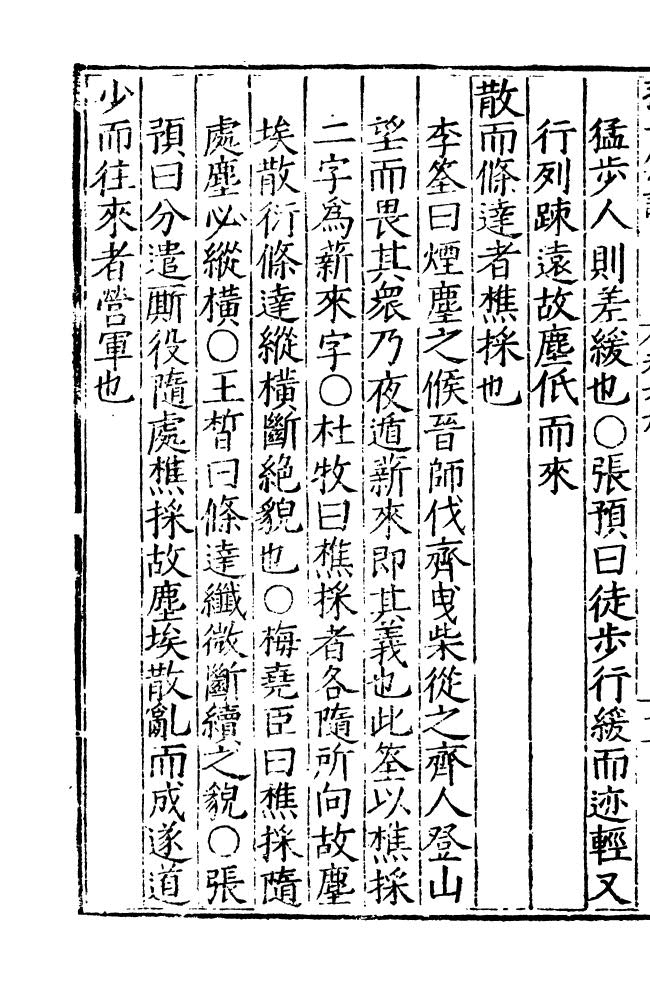 猛步人則差緩也○張預曰徒步行緩而迹輕又
行列踈遠故塵低而來
散而條達者樵採也
李筌曰煙塵之候晉師伐齊曳柴從之齊人登山
望而畏其衆乃夜遁薪來即其義也此筌以樵採
二字爲薪來字○杜牧曰樵採者各隨所向故塵
埃散衍條達縱橫斷絕貌也○梅堯臣曰樵採隨
處塵必縱橫○王晳曰條達纖微斷續之貌○張
預曰分遣厮役隨處樵採故塵埃散亂而成遂道
少而往來者營軍也